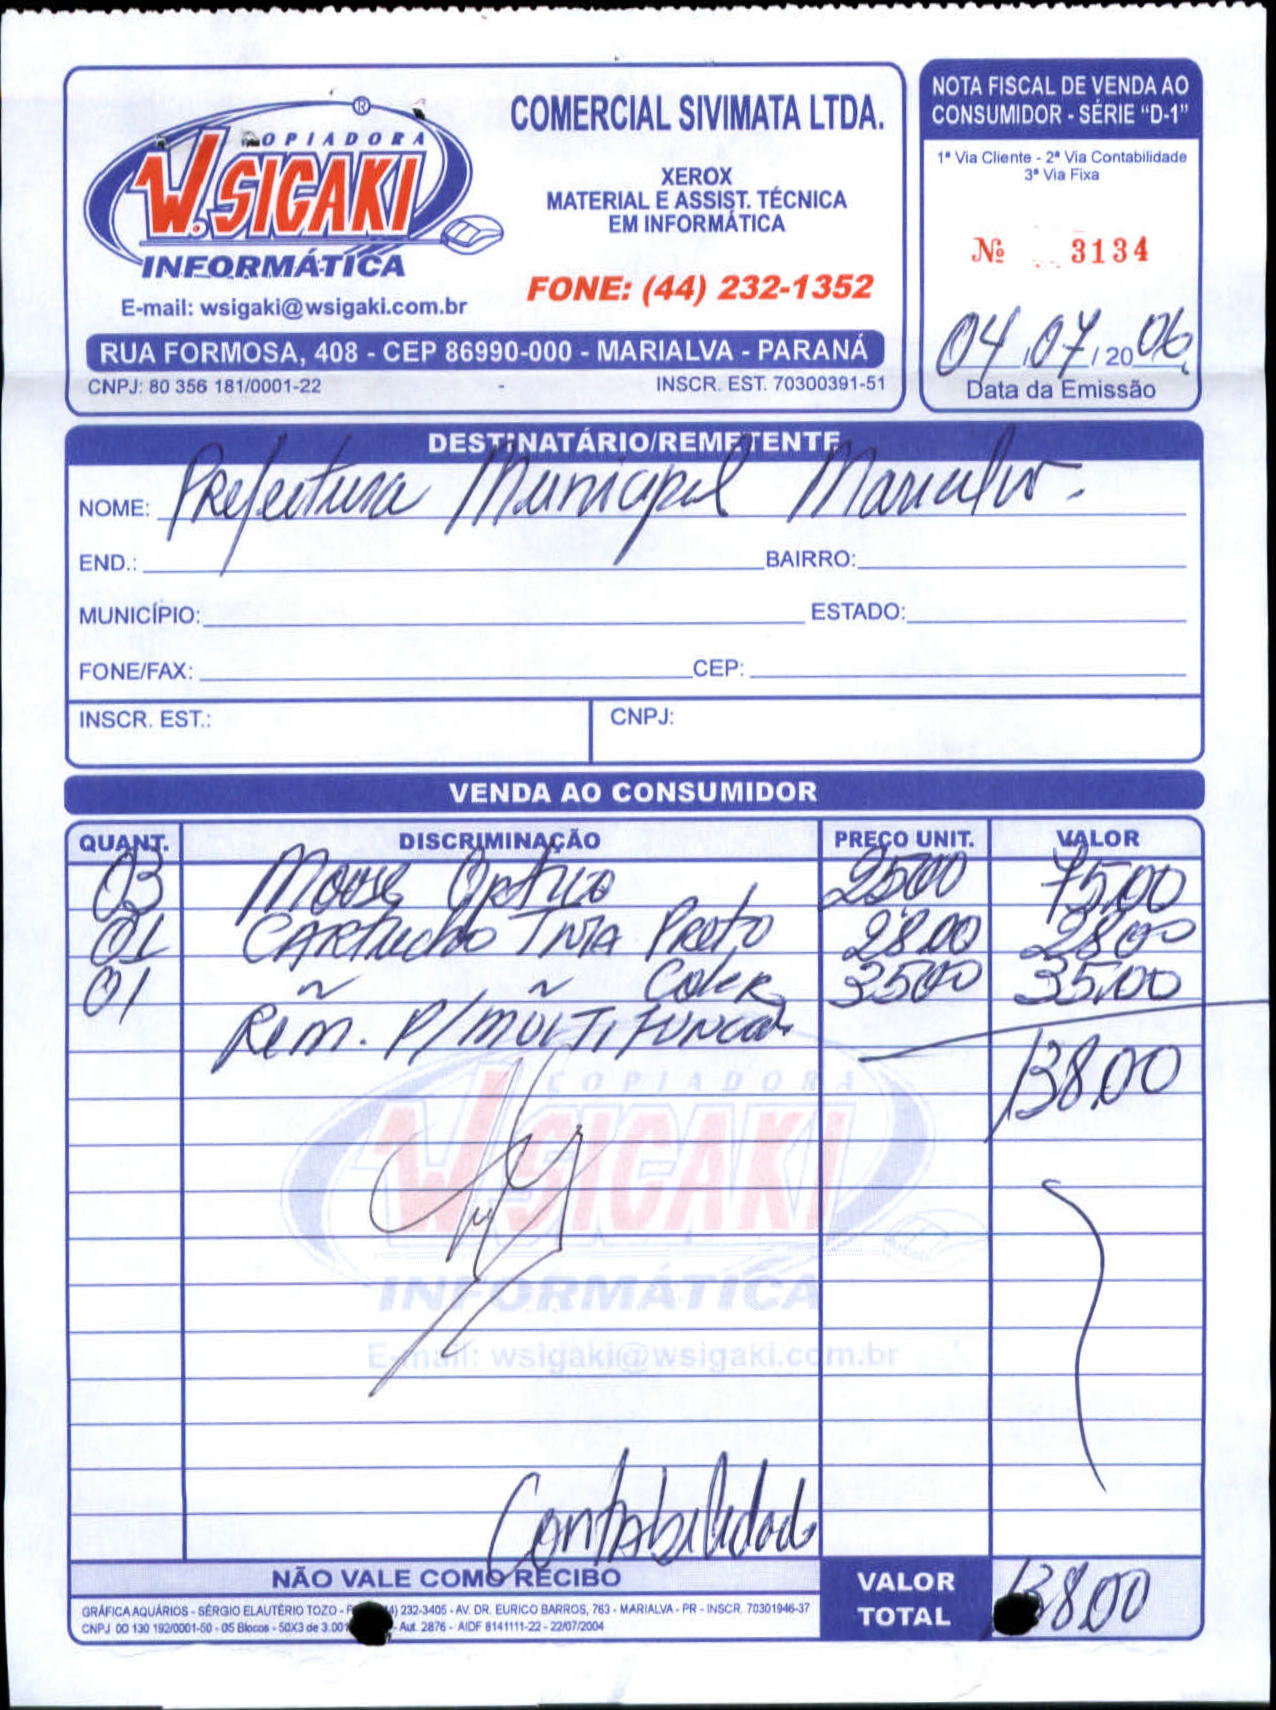 COPIADORA ®
W.SIGAKI
INFORMÁTICA
E-mail: wsigaki@wsigaki.com.br
COMERCIAL SIVIMATA LTDA.
XEROX
MATERIAL E ASSIST. TÉCNICA
EM INFORMÁTICA
FONE: (44) 232-1352
RUA FORMOSA, 408 - CEP 86990-000 - MARIALVA - PARANÁ
CNPJ: 80 356 181/0001-22 INSCR. EST. 70300391-51
NOTA FISCAL DE VENDA AO
CONSUMIDOR - SÉRIE "D-1"
1ª Via Cliente - 2ª Via Contabilidade
3ª Via Fixa
Nº 3134
04/07/2006
Data da Emissão
DESTINATÁRIO/REMETENTE
NOME: Prefeitura Municipal Marialva.
END.: BAIRRO:
MUNICÍPIO: ESTADO:
FONE/FAX: CEP:
INSCR. EST.: CNPJ:
VENDA AO CONSUMIDOR
QUANT. DISCRIMINAÇÃO PREÇO UNIT. VALOR
03 Mouse Optico 25,00 75,00
01 CARTUCHO TINTA Preto 28,00 28,00
01 ~ ~ Color 35,00 35,00
Rem. P/ MULTIFUNCON.
138,00
COPIADORA
W.SIGAKI
INFORMÁTICA
E-mail: wsigaki@wsigaki.com.br
Contabilidade
NÃO VALE COMO RECIBO
VALOR TOTAL 138,00
GRÁFICA AQUÁRIOS - SÉRGIO ELAUTÉRIO TOZO - 4) 232-3405 - AV. DR. EURICO BARROS, 763 - MARIALVA - PR - INSCR. 70301946-37
CNPJ 00 130 192/0001-50 - 05 Blocos - 50X3 de 3.001 - Aut. 2876 - AIDF 8141111-22 - 22/07/2004